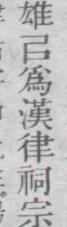 雄巳爲漢律祠宗